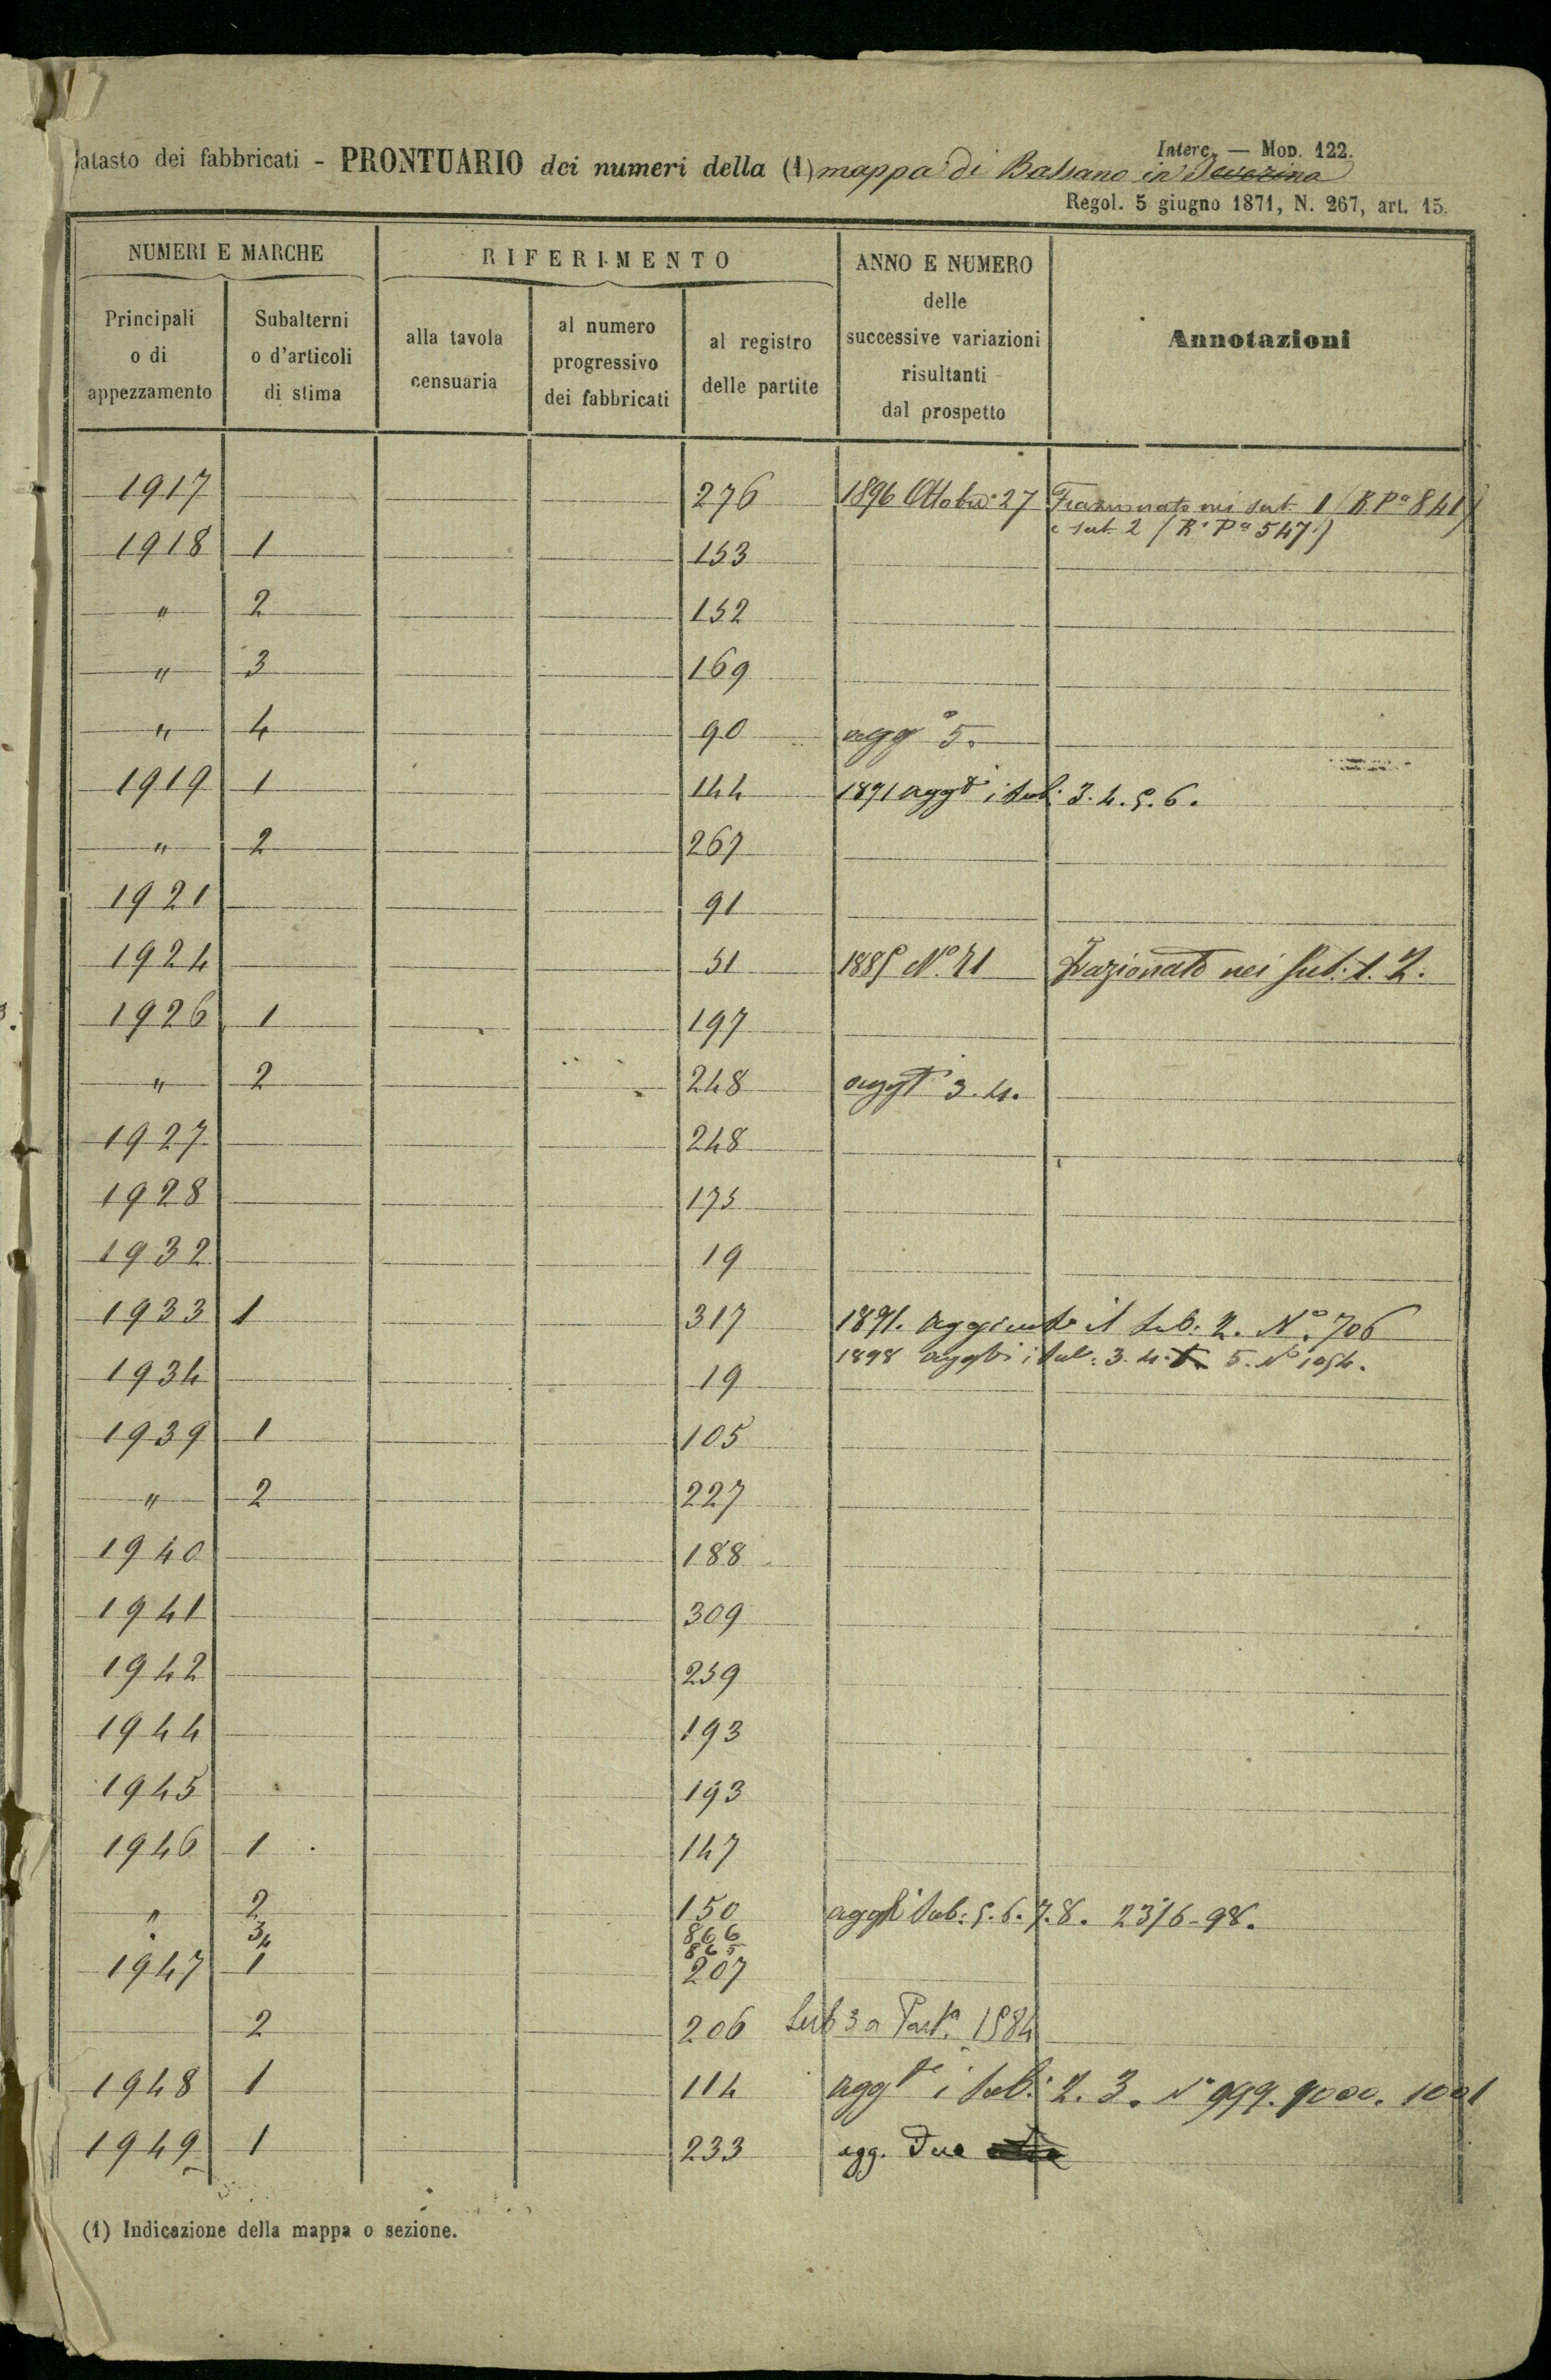 atasto dei fabbricati - PRONTUARIO dei numeri della (1) mappa di Balsano in
Interc. — Mod. 122.
Regol. 5 giugno 1871, N. 267, art. 15.
NUMERI E MARCHE
RIFERIMENTO
ANNO E NUMERO delle successive variazioni risultanti dal prospetto
Annotazioni
Principali o di appezzamento
Subalterni o d'articoli di stima
alla tavola censuaria
al numero progressivo dei fabbricati
al registro delle partite
1917 276 1896 Ottobre 27 Frazionato nei sub. 1 (R. Pa 841)
e sub. 2 (R. Pa 547)
1918 1 153
" 2 152
" 3 169
" 4 90 aggo 5.
1919 1 144 1891 aggti i sub. 3. 4. 5. 6.
" 2 267
1921 91
1924 51 1885 No. 41 Frazionato nei Sub. 1. 2.
1926 1 197
" 2 248 aggti 3. 4.
1927 248
1928 175
1932 19
1933 1 317 1891. Aggiunto il Sub. 2. No. 706
1898 aggti i Sub. 3. 4. 5. No 1054.
1934 19
1939 1 105
" 2 227
1940 188
1941 309
1942 259
1944 193
1945 193
1946 1 147
" 2 150 aggti Sub: 5. 6. 7. 8. 23/6-98.
" 3 866
4 865
1947 1 207
2 206 Sub 3 a Parta. 1584
1948 1 114 aggti i Sub. 2. 3. No 999. 1000. 1001
1949 1 233 agg. Due
(1) Indicazione della mappa o sezione.